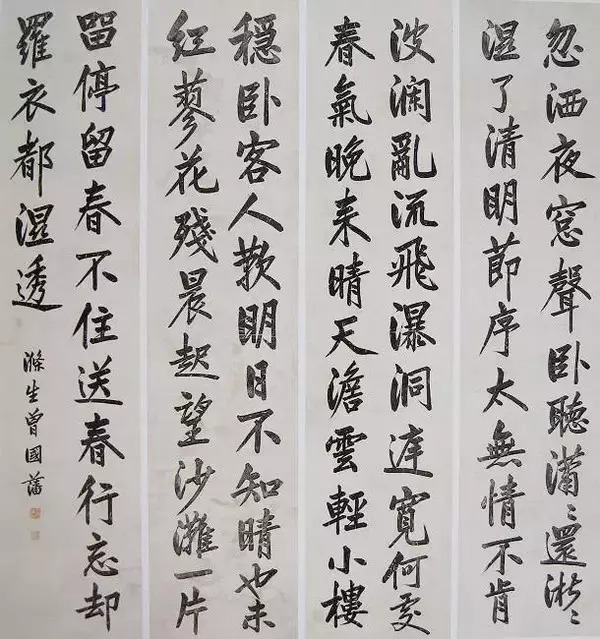 忽洒夜窓聲卧聽瀟〻還淅〻
濕了清明節序太無情不肯
波瀾亂流飛瀑洞庭寬何處
春氣晚来晴天澹雲輕小樓
穏卧客人歎明日不知晴也未
紅蓼花殘晨起望沙灘一片
畱停留春不住送春行忘却
羅衣都濕透
滌生曾國藩